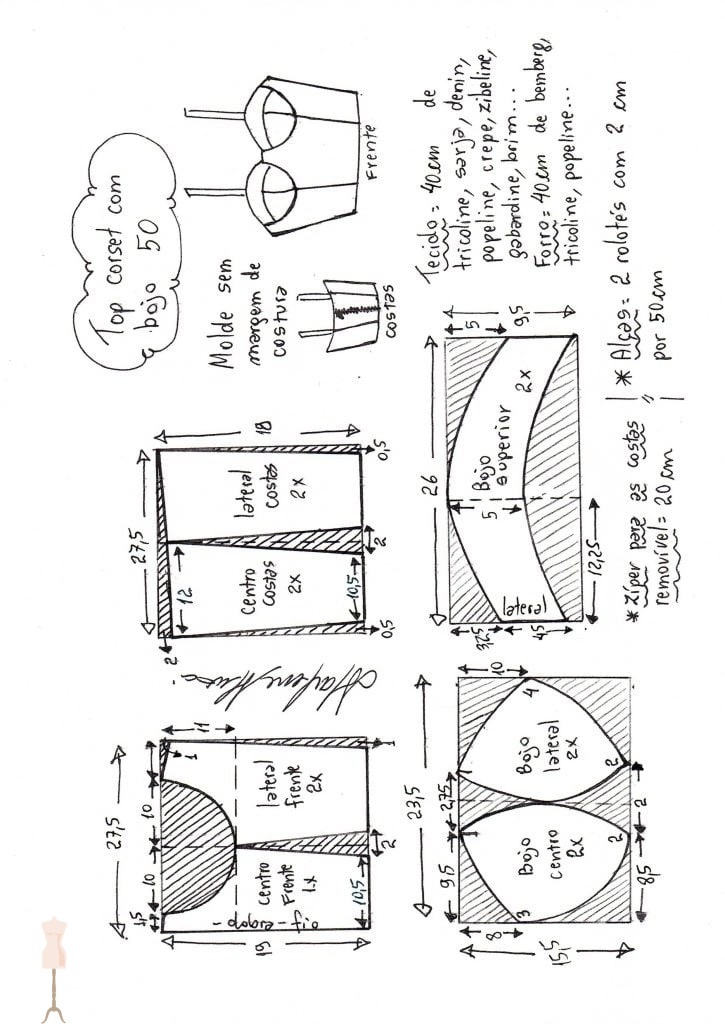 Top corset com
bojo 50
Molde sem
margem de
costura
Frente
costas
Tecido = 40cm de
tricoline, sarja, denin,
popeline, crepe, zibeline,
gabardine, brim...
Forro = 40cm de bemberg,
tricoline, popeline...
* Alças = 2 rolotés com 2 cm
por 50cm
* Zíper para as costas
removível = 20 cm
27,5
18
2
12
Centro
costas
2x
lateral
costas
2x
10,5
2
0,5
0,5
26
5
9,5
Bojo
superior
2x
5
lateral
3,25
4,5
12,25
27,5
1,5
10
10
11
1
19
Centro
Frente
1x
lateral
frente
2x
dobra do
10,5
2
1
23,5
9,5
2,75
10
8
15,5
1
1
3
4
2
2
Bojo
centro
2x
Bojo
lateral
2x
8,5
2